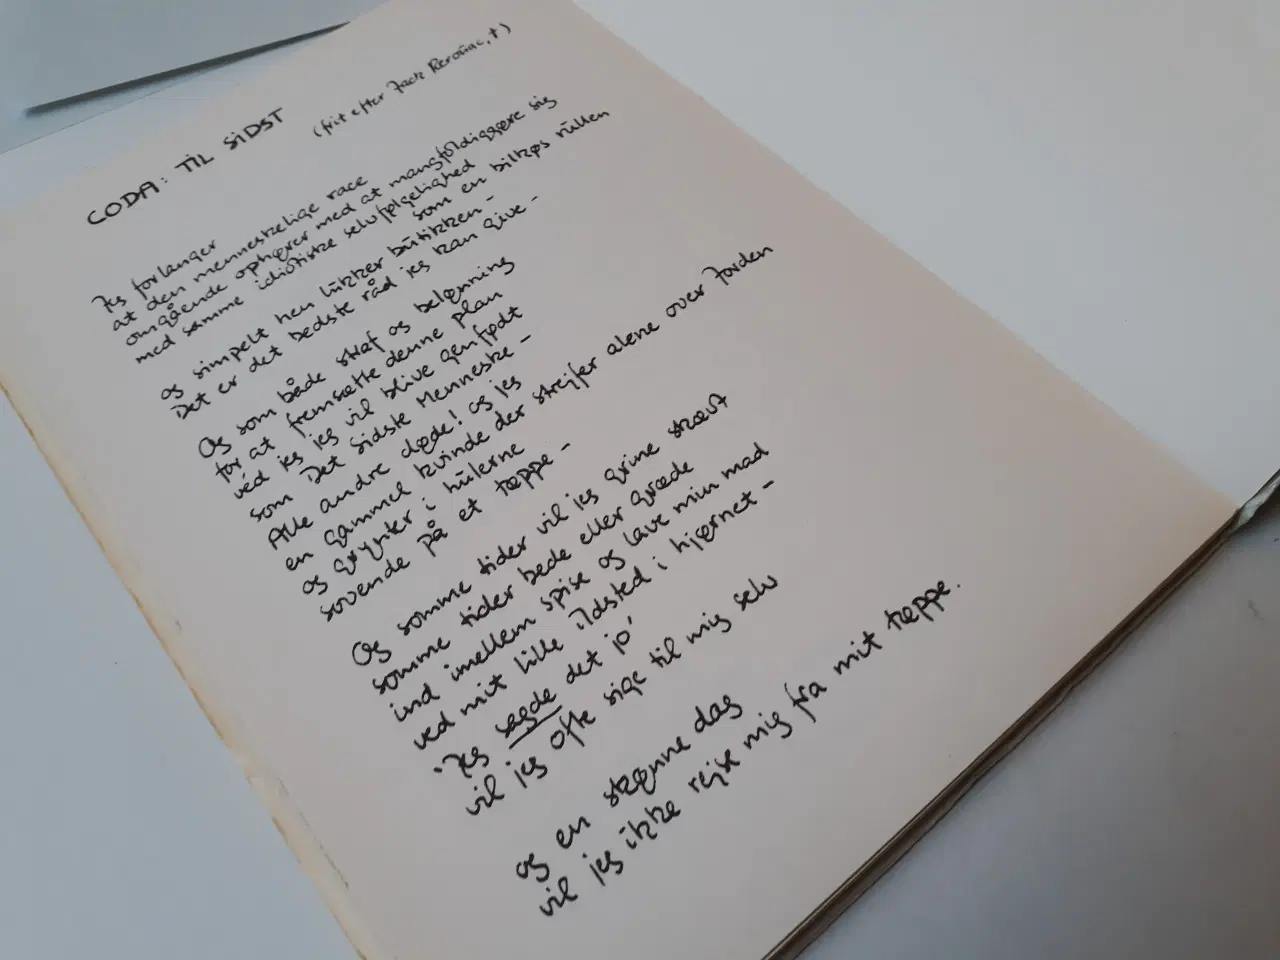 CODA: TIL SIDST
(frit efter Jack Kerouac, †)
Jeg forlanger
at den menneskelige race
omgående ophører med at mangfoldiggøre sig
med samme idiotiske selvfølgelighed
som en bilkøs rullen
og simpelt hen lukker butikken –
Det er det bedste råd jeg kan give –
Og som både straf og belønning
for at fremsætte denne plan
véd jeg jeg vil blive genfødt
som Det Sidste Menneske –
Alle andre døde! og jeg
en gammel kvinde der strejfer alene over Jorden
og grynter i hulerne
sovende på et tæppe –
Og somme tider vil jeg grine skævt
somme tider bede eller græde
ind imellem spise og lave min mad
ved mit lille ildsted i hjørnet –
'Jeg sagde det jo'
vil jeg ofte sige til mig selv
og en skønne dag
vil jeg ikke rejse mig fra mit tæppe.